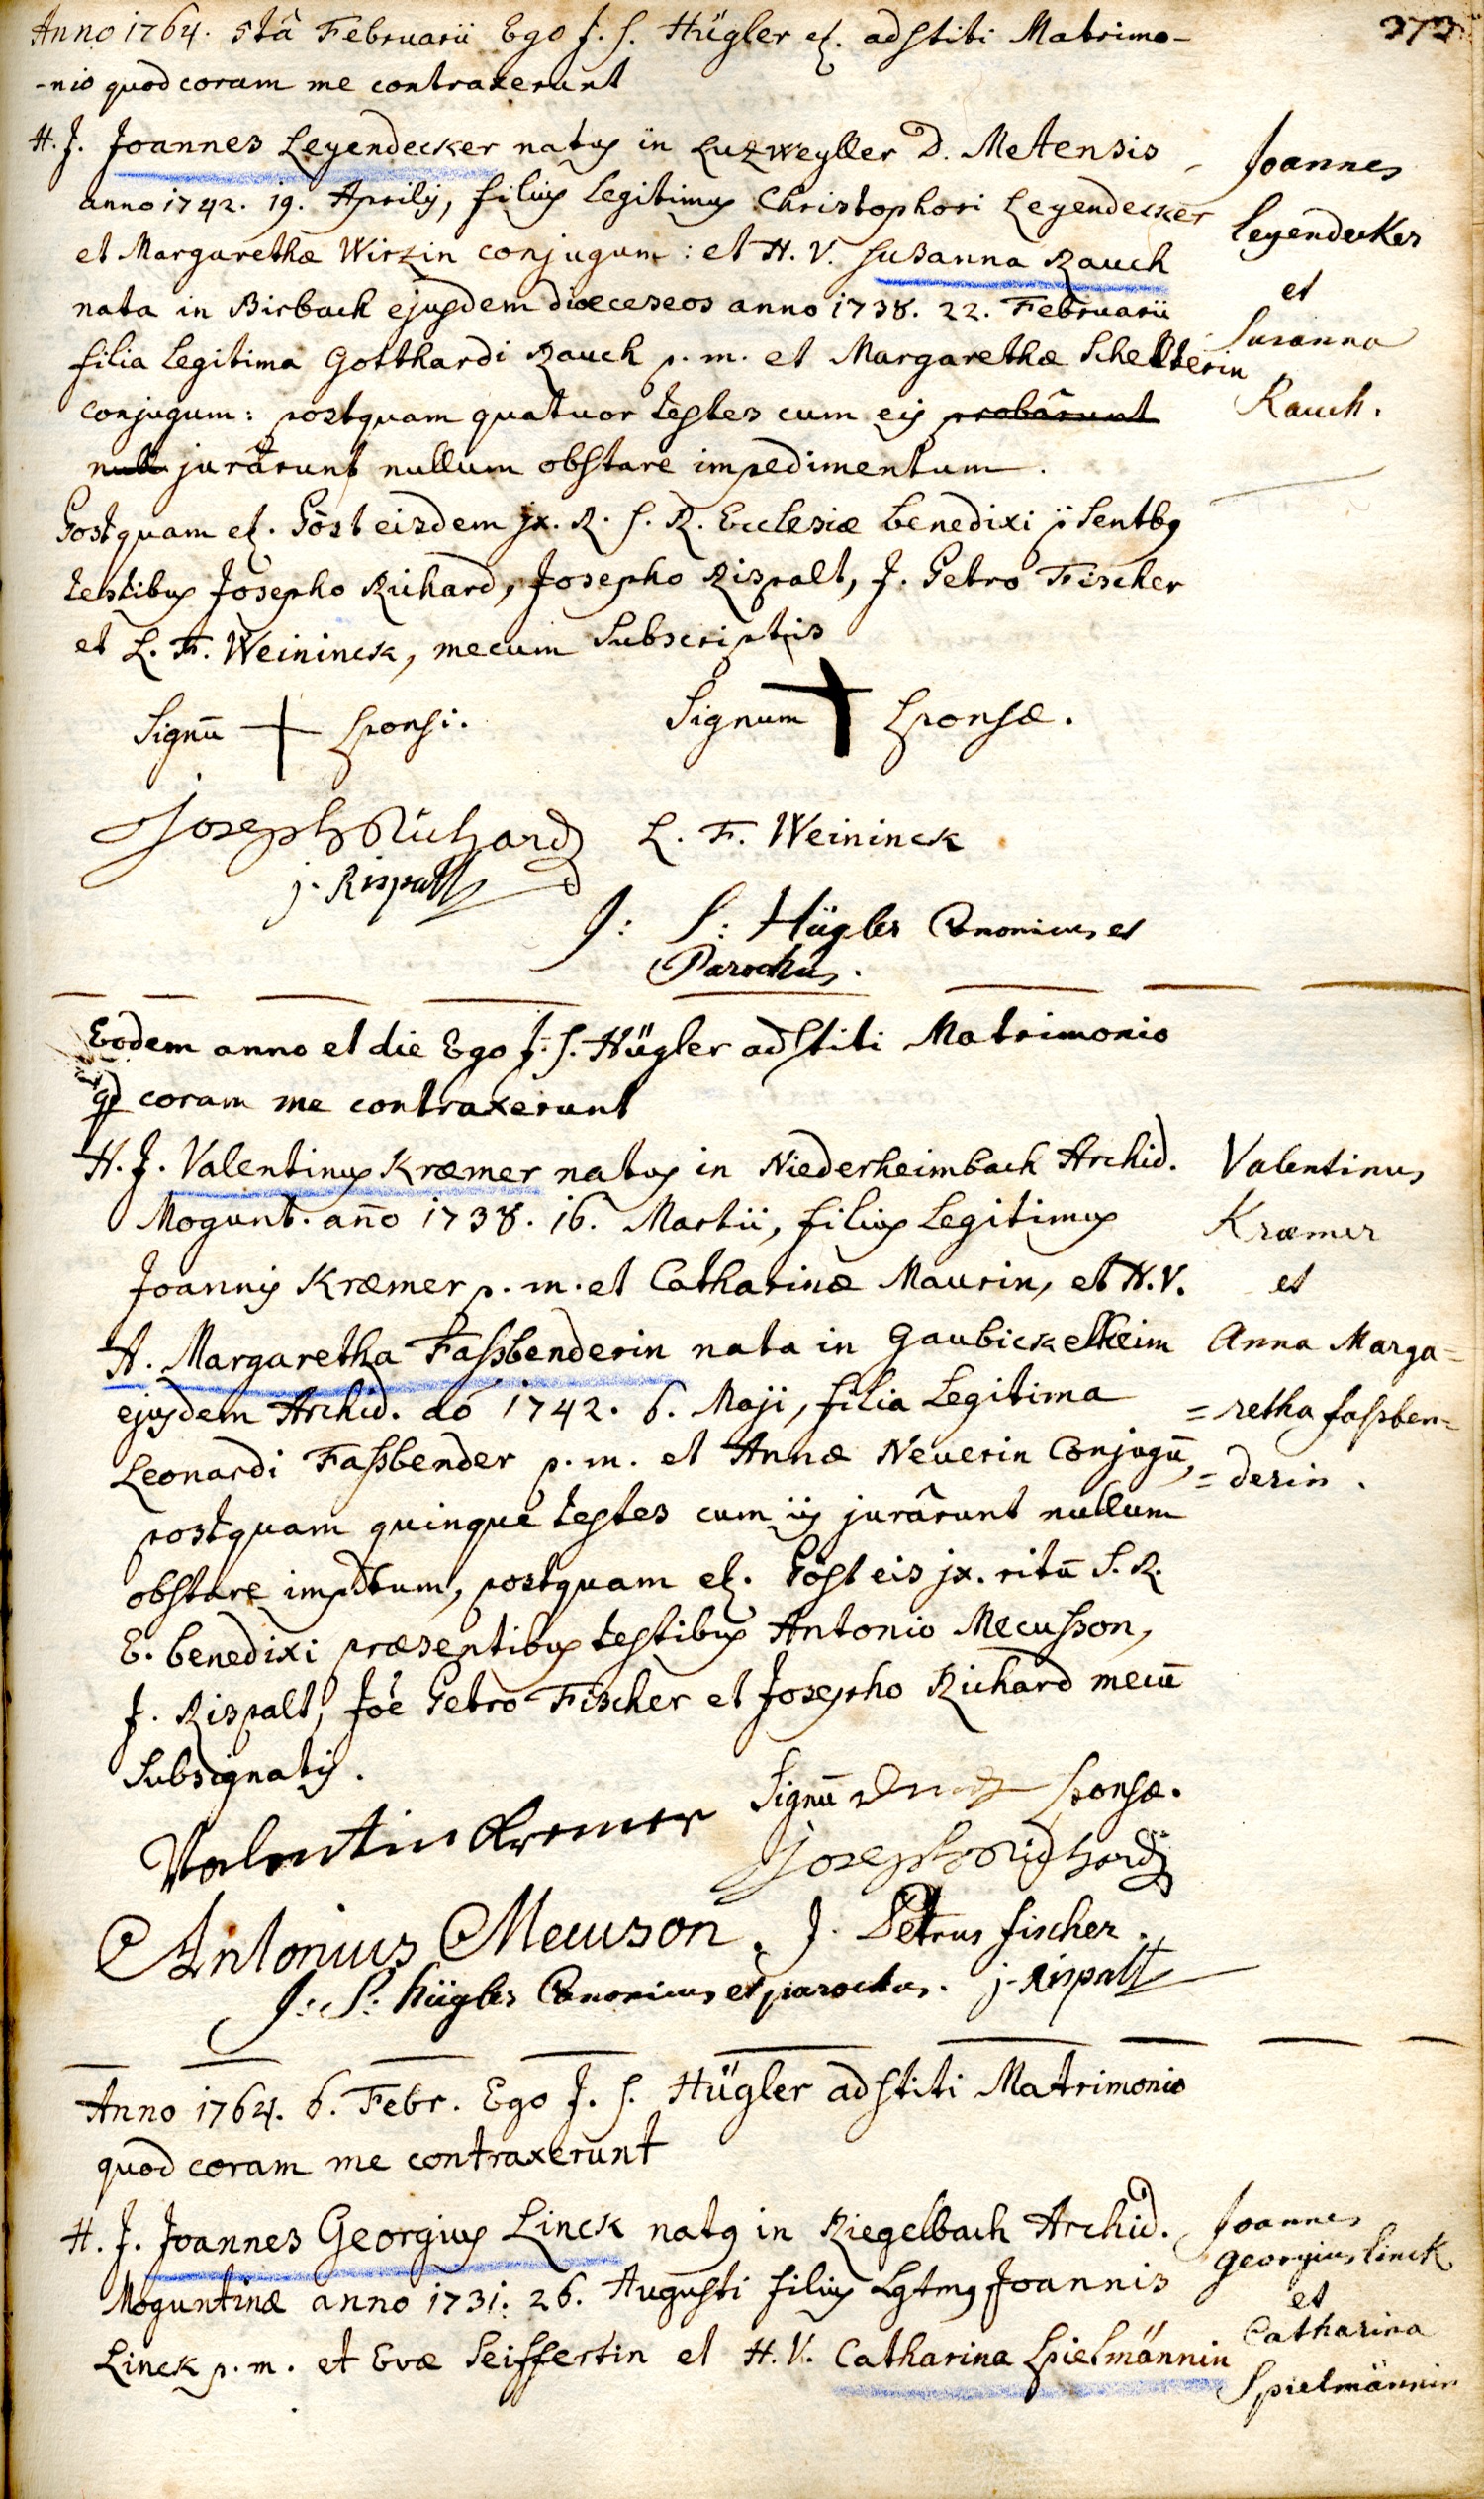 373
Anno 1764. 5tâ Februarii Ego J. S. Hügler etz. adstiti Matrimo-
-nio quod coram me contraxerunt
H. J. Joannes Leyendecker natus in Luzweyller D. Metensis
anno 1742. 19. Aprilis, filius legitimus Christophori Leyendecker
et Margarethæ Wirzin conjugum: et H. V. Susanna Rauch
nata in Birbach ejusdem diœceseos anno 1738. 22. Februarii
filia legitima Gotthardi Rauch p. m. et Margarethæ Schelterin
conjugum: postquam quatuor testes cum eis probârunt
null jurârunt nullum obstare impedimentum.
Joannes
Leyendecker
et
Susanna
Rauch.
Postquam etz. Põst eisdem jx. R. S. R. Ecclesiæ benedixi p̄sentbg
testibus Josepho Richard, Josepho Rispalt, J. Petro Fischer
et L. F. Weininck, mecum Subscriptis
Signū + Sponsi. Signum + Sponsæ.
Joseph Richard L. F. Weininck
j. Rispalt
J: S: Hügler Canonicus et
Parochus.
Eodem anno et die Ego J. S. Hügler adstiti Matrimonio
qd coram me contraxerunt
H. J. Valentinus Kræmer natus in Niederheimbach Archid.
Mogunt. año 1738. 16. Martii, filius legitimus
Joannis Kræmer p. m. et Catharinæ Maurin, et H. V.
A. Margaretha Faßbenderin nata in Gaubickelheim
ejusdem Archid. aō 1742. 6. Maji, filia legitima
Leonardi Faßbender p. m. et Annæ Neuerin Conjugū,
postquam quinque testes cum iis jurârunt nullum
obstare impdtum, postquam etz. Põst eis jx. ritū S. R.
E. benedixi præsentibus testibus Antonio Mecusson,
J. Rispalt, Jōe Petro Fischer et Josepho Richard mecū
Subsignatis.
Valentinus
Kræmer
et
Anna Marga=
=retha faßben=
=derin.
Signū Sponsæ.
Valentin Kremer
Joseph Richard
Antonius Mecuson. J. Petrus fischer.
J: S: hügler Canonicus et parochus. j. Rispalt
Anno 1764. 6. Febr. Ego J. S. Hügler adstiti Matrimonio
quod coram me contraxerunt
H. J. Joannes Georgius Linck natg in Riegelbach Archid.
Moguntinæ anno 1731. 26. Augusti filius Lgtmg Joannis
Linck p. m. et Evæ Seiffertin et H. V. Catharina Spielmännin
Joannes
georgius linck
et
Catharina
Spielmännin